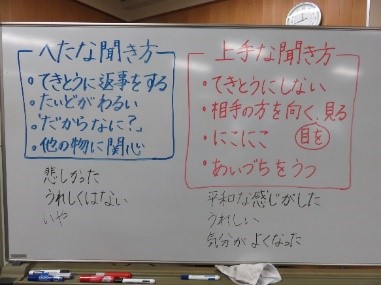 へたな聞き方
・てきとうに返事をする
・たいどがわるい
・「だからなに?」
・他の物に関心
悲しかった
うれしくはない
いや
上手な聞き方
・てきとうにしない
・相手の方を向く、見る
・にこにこ
目を
・あいづちをうつ
平和な感じがした
うれしい
気分がよくなった